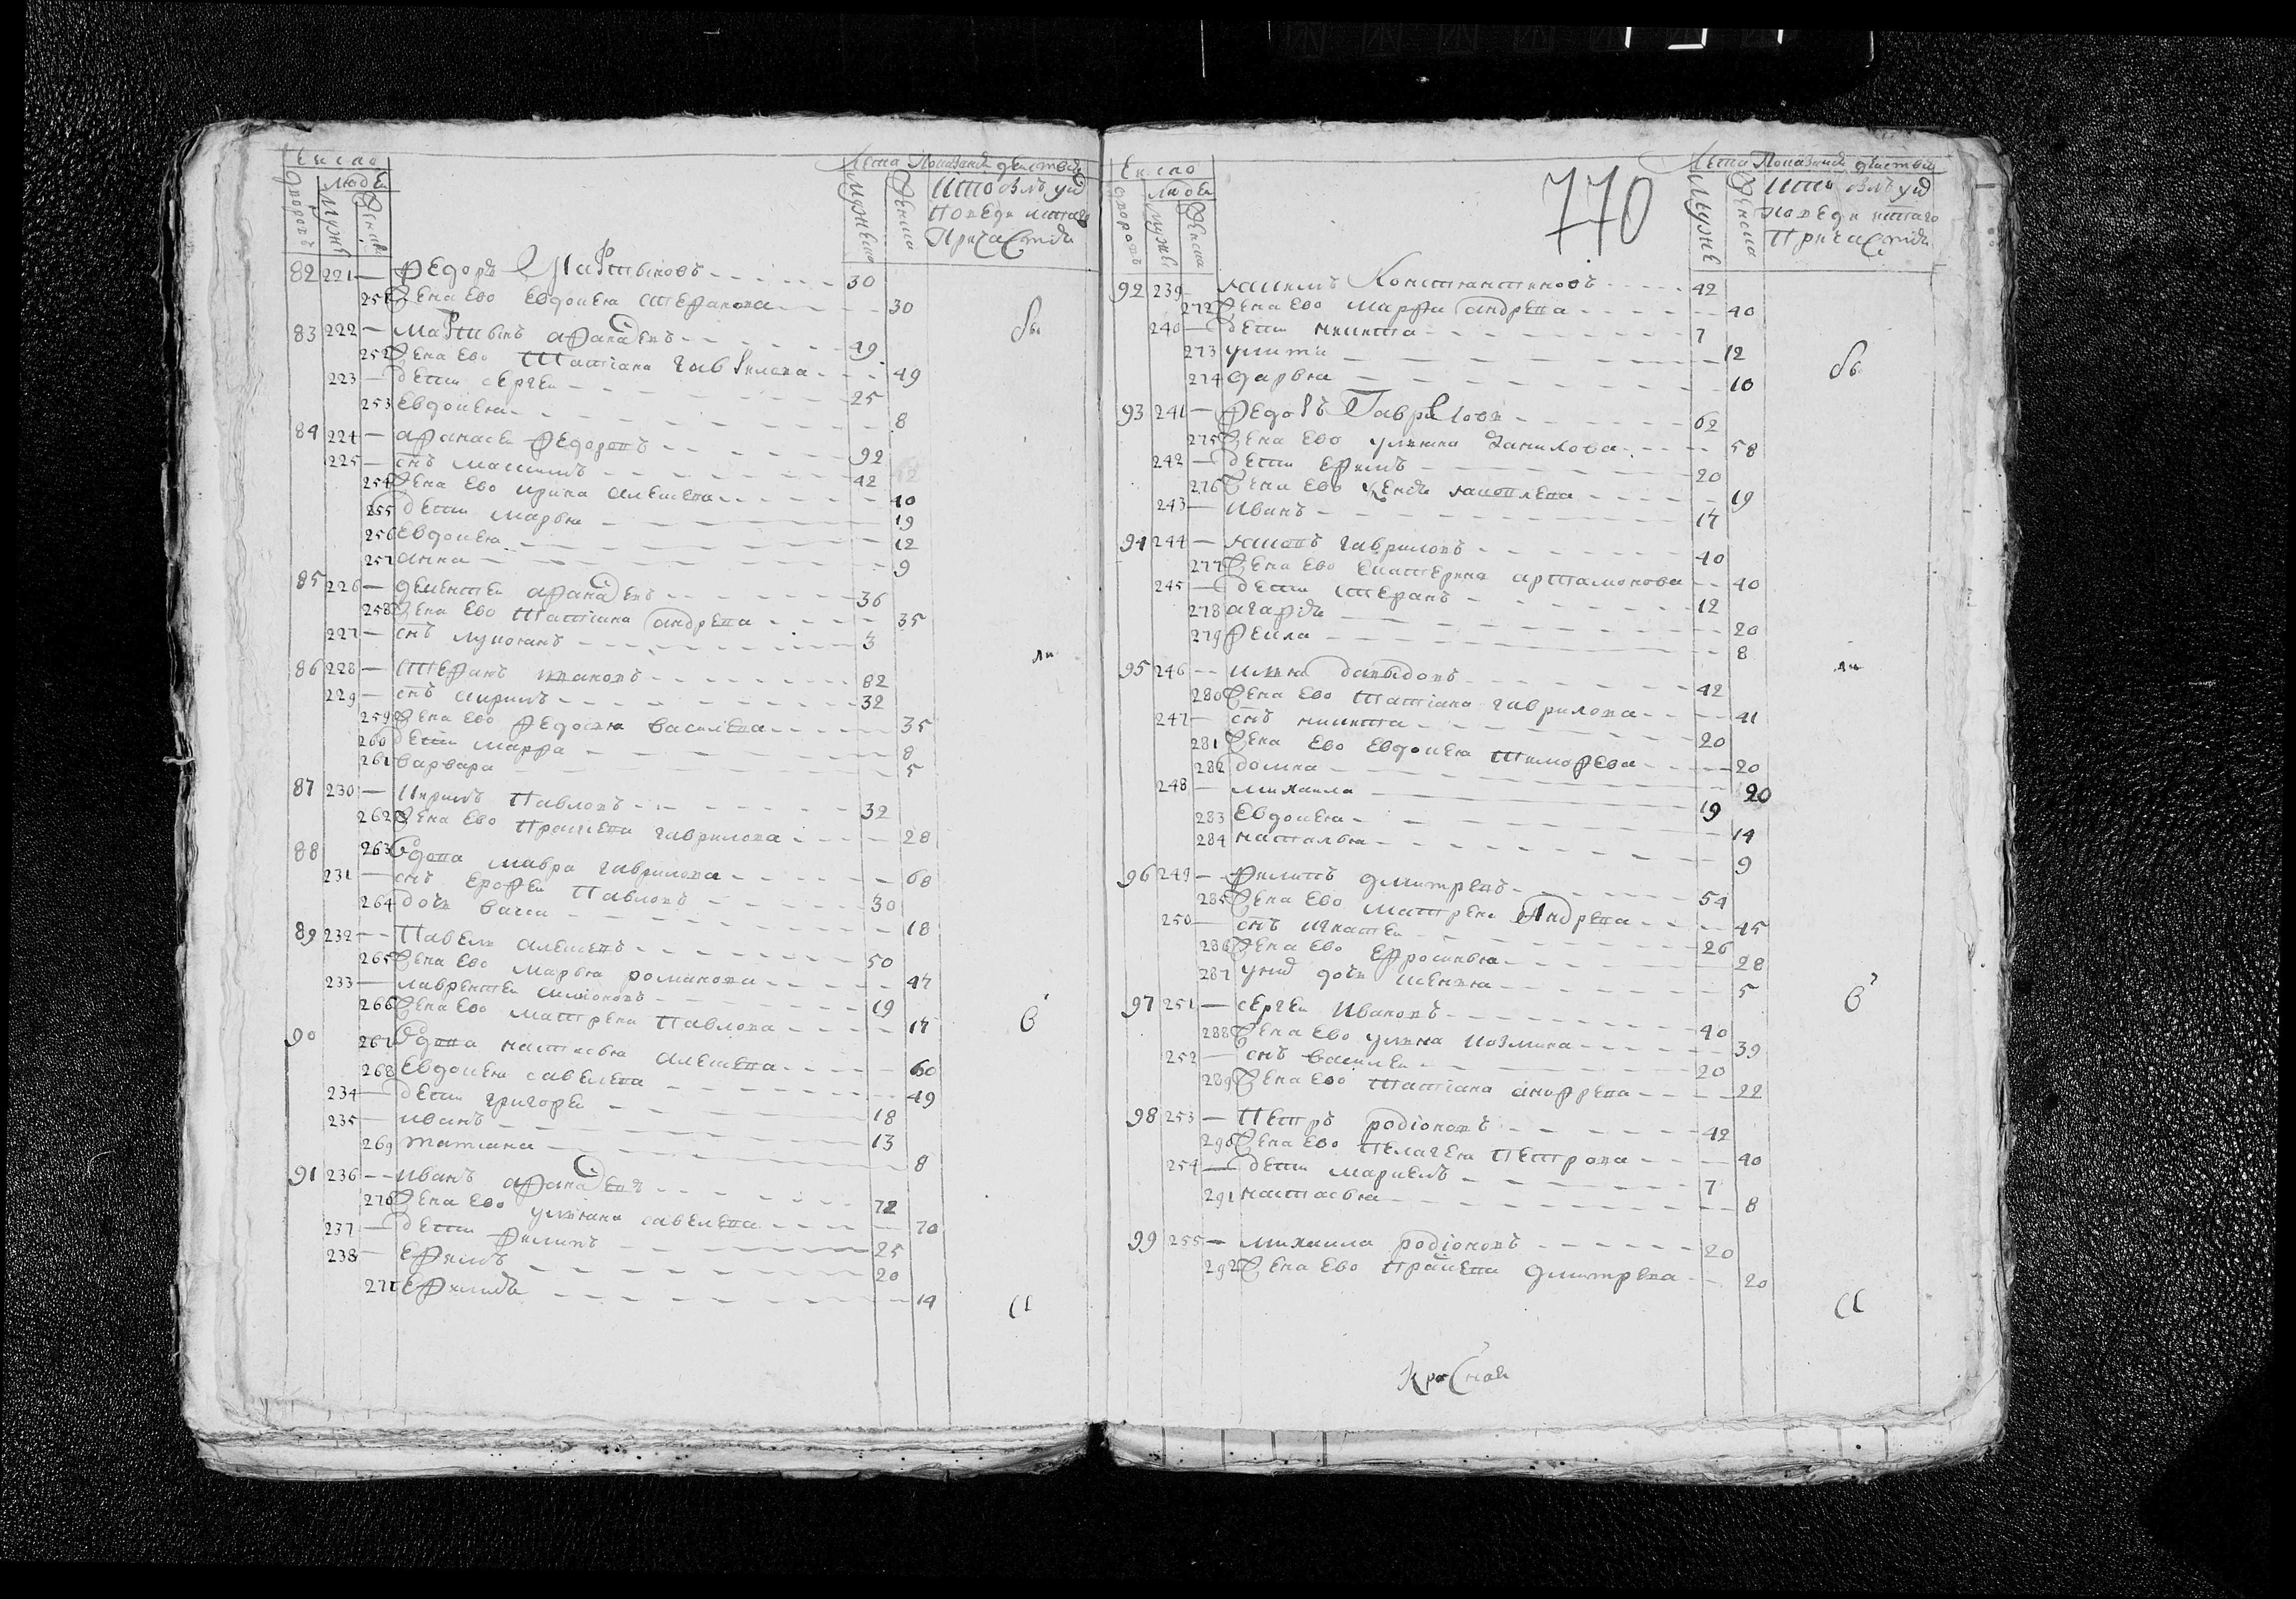 Число
Дворовъ
людеи
Мужс
Женс
Лета
Мужеска
Женска
Показание действа
Кто былъ у исповеди и святаго
Причастия
82 221 — Федоръ Мартыновъ 30
251 Жена ево Евдокея Стефанова 30
83 222 — Мартынъ Афанасевъ 49
252 Жена ево Татиана Гаврилова 49
223 — дети Сергеи 25
253 Евдокея 8
84 224 — Афанасеи Федоровъ 92
225 — снъ Максимъ 42
254 Жена ево Ирина Алексева 40
255 дети Марья 19
256 Евдокея 12
257 Анна 9
85 226 — Дементеи Афанасевъ 36
258 Жена ево Татиана Андрева 35
227 — снъ Лукоянъ 3
86 228 — Стефанъ Ивановъ 82
229 — снъ Кирилъ 32
259 Жена ево Федосья Василева 35
260 дети Марфа 8
261 Варвара 5
87 230 — Кирилъ Павловъ 32
262 Жена ево Праскева Гаврилова 28
88 263 Вдова Мавра Гаврилова 68
231 — снъ Ерофеи Павловъ 30
264 дочь Васса 18
89 232 — Павелъ Алексевъ 50
265 Жена ево Марья Романова 47
233 — Лаврентеи Симионовъ 19
266 Жена ево Матрена Павлова 17
90 267 Вдова Настасья Алексева 60
268 Евдокея Савелева 49
234 — дети Григореи 18
235 — Иванъ 13
269 Татиана 8
91 236 — Иванъ Афанасевъ 72
270 Жена ево Ульяна Савелева 70
237 — дети Филипъ 25
238 — Ефимъ 20
271 Ефимия 14
бы
ли
в
си
770
Число
Дворовъ
людеи
Мужс
Женска
Лета
Мужс
Женска
Показание действа
Кто былъ у исповеди и святаго
Причастия
92 239 — Якимъ Константиновъ 42
272 Жена ево Марфа Андрева 40
240 — дети Никита 7
273 Улита 12
274 Дарья 10
93 241 — Федоръ Гавриловъ 62
275 Жена ево Ульяна Данилова 58
242 — дети Ефимъ 20
276 Жена ево Ксения Яковлева 19
243 — Иванъ 17
94 244 — Яковъ Гавриловъ 40
277 Жена ево Екатерина Артамонова 40
245 — дети Стефанъ 12
278 Агафия 20
279 Фекла 8
95 246 — Илья Давыдовъ 42
280 Жена ево Татиана Гаврилова 41
247 — снъ Никита 20
281 Жена ево Евдокея Тимофева 20
282 Домна 20
248 — Михаила 19
283 Евдокея 14
284 Наталья 9
96 249 — Филипъ Дмитревъ 54
285 Жена ево Матрена Андрева 45
250 — снъ Игнатеи 26
286 Жена ево Ефросинья 28
287 дочь 5
97 251 — Сергеи Ивановъ 40
288 Жена ево Ульяна Козмина 39
252 — снъ Василеи 20
289 Жена ево Татиана Анофрева 22
98 253 — Петръ Родионовъ 42
290 Жена ево Пелагея Петрова 40
254 — дети Маркелъ 7
291 Настасья 8
99 255 — Михаила Родионовъ 20
292 Жена ево Праскева Дмитрева 20
бы
ли
в
си